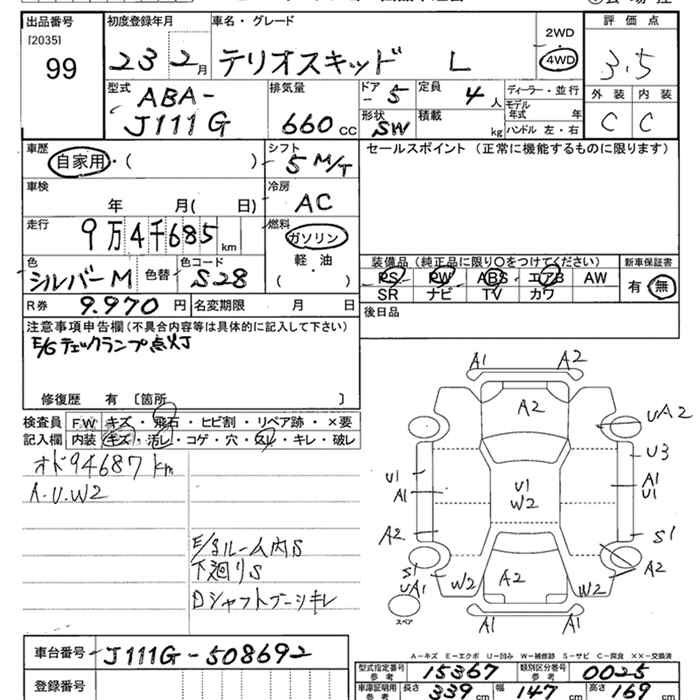 出品番号 初度登録年月 車名・グレード 評価点
[2035] 99 23 2月 テリオスキッド L 2WD 4WD 3.5
型式 ABA-J111G 排気量 660cc
ドアー 5 定員 4人 ディーラー・並行
形状 SW 積載 kg モデル年式 年 ハンドル 左・右
外装 内装
C C
車歴 自家用・( ) シフト 5 M/T
セールスポイント(正常に機能するものに限ります)
車検 年 月( 日) 冷房 AC
走行 9万4千685km 燃料 ガソリン 軽・油 ( )
色 シルバーM 色替 色コード S28
装備品(純正品に限り○をつけてください) 新車保証書
PS PW ABS エアB AW 有 無
SR ナビ TV カワ
R券 9.970円 名変期限 月 日
後日品
注意事項申告欄(不具合内容等は具体的に記入して下さい)
E/Gチェックランプ点灯
修復歴 有〔箇所 〕
検査員記入欄 F.W キズ・飛石・ヒビ割・リペア跡・×要
内装 キズ・汚レ・コゲ・穴・スレ・キレ・破レ
オド94687km
A.U.W2
E/gルーム内S
下廻りS
Dシャフトブーツキレ
A1 A2
A2 UA2
U3
U1 A1 U1 W2 A1 U1
A2 S1
S1 UA1 W2 A2 W2 A2
スペア
A1 A1
A-キズ E-エクボ U-凹み W-補修跡 S-サビ C-腐食 ××-交換済
車台番号 J111G-508692
登録番号
型式指定番号 参考 15367 類別区分番号 参考 0025
車庫証明用 参考 長さ 339cm 幅 147cm 高さ 169cm